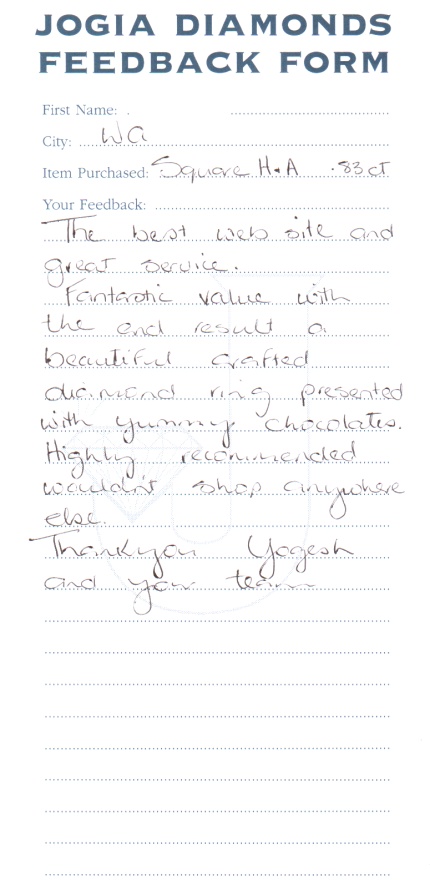 JOGIA DIAMONDS
FEEDBACK FORM
First Name:
City: WA
Item Purchased: Square H&A .83ct
Your Feedback:
The best web site and
great service.
Fantastic value with
the end result a
beautiful crafted
diamond ring presented
with yummy chocolates.
Highly recommended
wouldn't shop anywhere
else.
Thankyou Yogesh
and your team